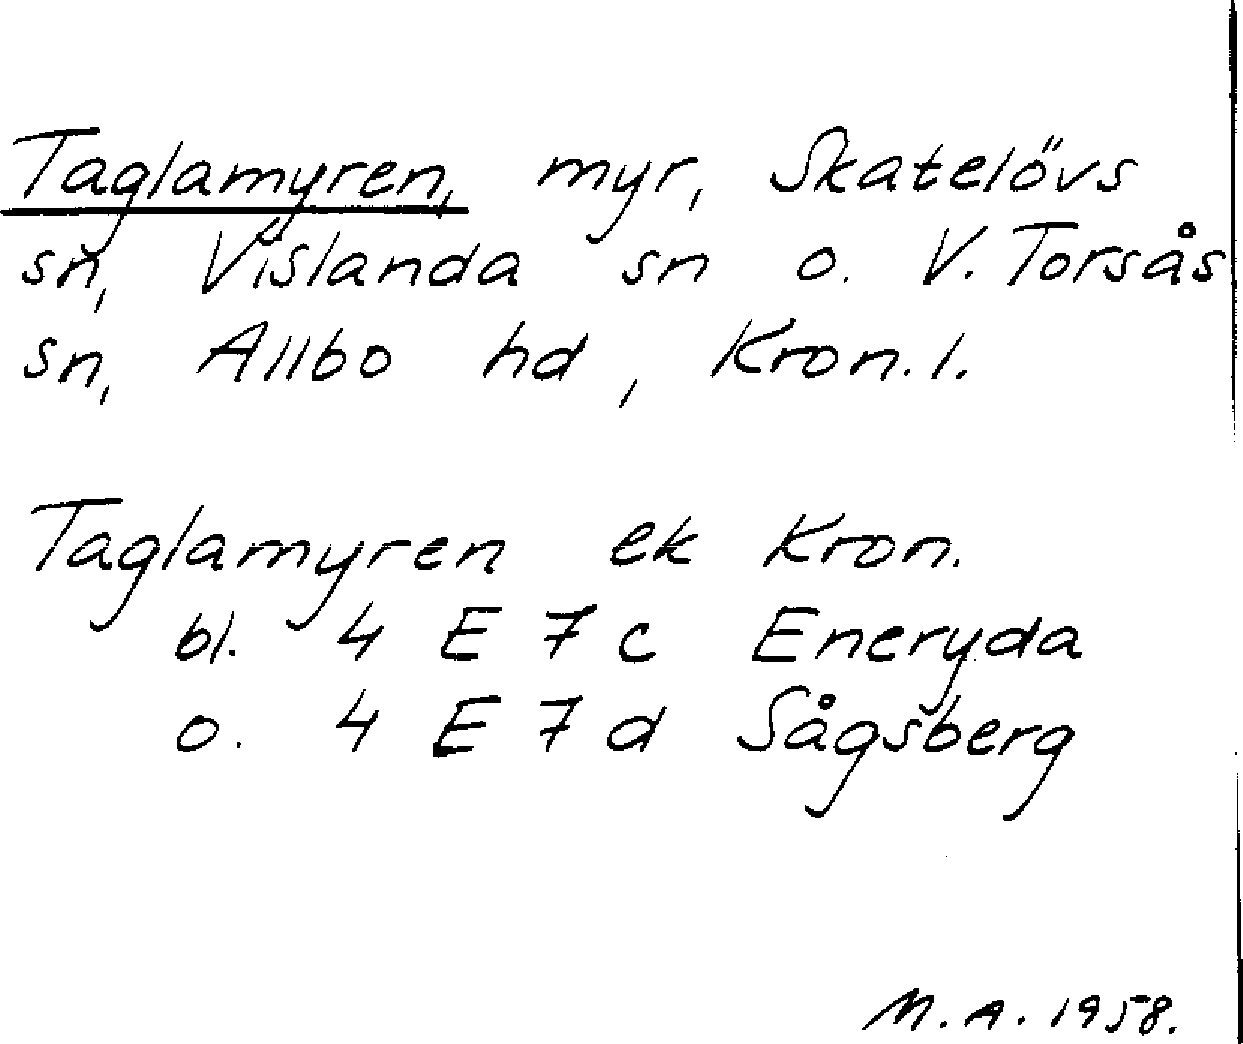 Taglamyren, myr, Skatelövs
sn, Vislanda sn o. V. Torsås
sn, Allbo hd, Kron. l.
Taglamyren ek Kron.
bl. 4 E 7 c Eneryda
o. 4 E 7 d Sågsberg
M. A. 1958.